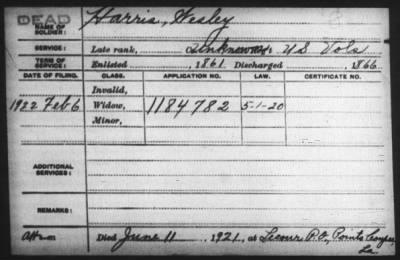 DEAD
NAME OF SOLDIER: Harris, Wesley
SERVICE: Late rank, Unknown, US Vols
TERM OF SERVICE: Enlisted , 1861 Discharged , 1866
DATE OF FILING. CLASS. APPLICATION NO. LAW. CERTIFICATE NO.
Invalid,
1922 Feb 6 Widow, 1184782 5-1-20
Minor,
ADDITIONAL SERVICES:
REMARKS:
Died June 11, 1921, at P.O, Pointe Coupee,
La.